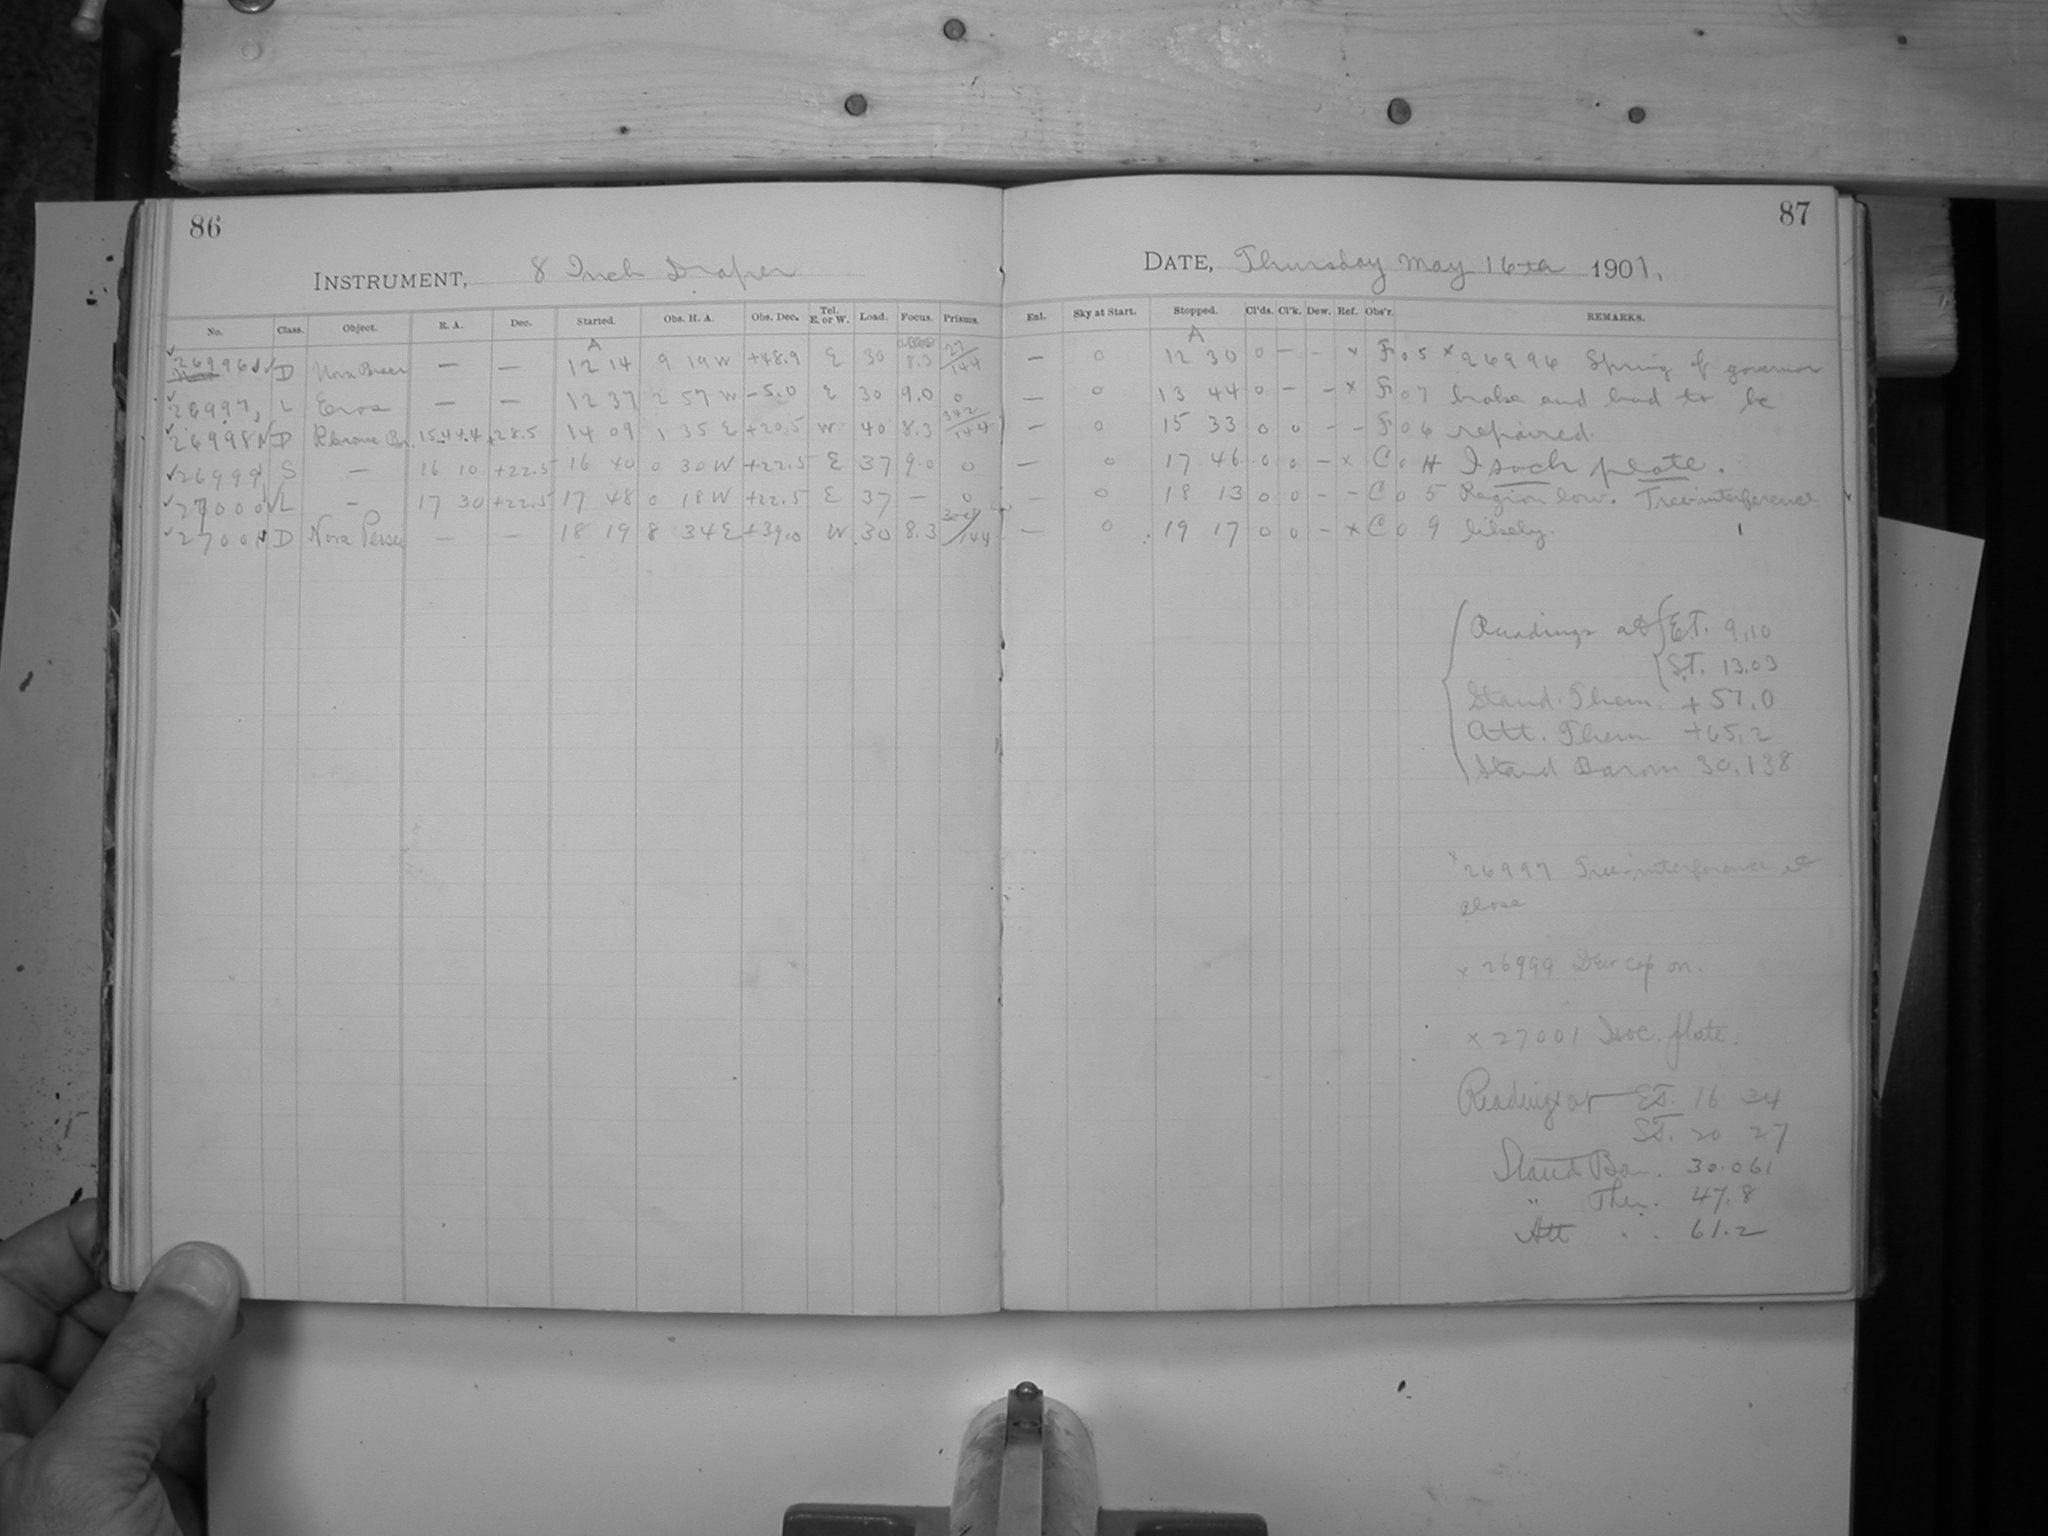 86
INSTRUMENT, 8 Inch Draper
No. Class. Object. R. A. Dec. Started. Obs. H. A. Obs. Dec. Tel. E. or W. Load. Focus. Prisms.
A
26996 D Nova — — 12 14 9 19 W +48.9 E 30 8.3 27/144
26997 L Eros — — 12 37 2 57 W -5.0 E 30 9.0 0
26998 D 15 44.4 +28.5 14 09 1 35 E +20.5 W 40 8.3 342/144
26999 S — 16 10 +22.5 16 40 0 30 W +22.5 E 37 9.0 0
27000 L — 17 30 +22.5 17 48 0 18 W +22.5 E 37 — 0
27001 D Nova Persei — — 18 19 8 34 E +39.0 W 30 8.3 /144
87
DATE, Thursday May 16th 1901.
Enl. Sky at Start. Stopped. Cl'ds. Cl'k. Dew. Ref. Obs'r. REMARKS.
A
— 0 12 30 0 — - x F 05 x 26996 Spring of governor
— 0 13 44 0 — - x F 07 broke and had to be
— 0 15 33 0 0 - - F 06 repaired.
— 0 17 46 0 0 - x C 0 H Isoch plate.
— 0 18 13 0 0 - - C 0 5 Region low. Tree-interference
— 0 19 17 0 0 - x C 0 9 likely.
Readings at E.T. 9.10
S.T. 13.03
Stand. Therm. +57.0
Att. Therm +65.2
Stand Barom 30.138
x 26997 Tree-interference at
close
x 26999 Dew cap on.
x 27001 Isoc. plate.
Readings at E.T. 16 34
S.T. 20 27
Stand Bar. 30.061
" Ther. 47.8
Att " . 61.2